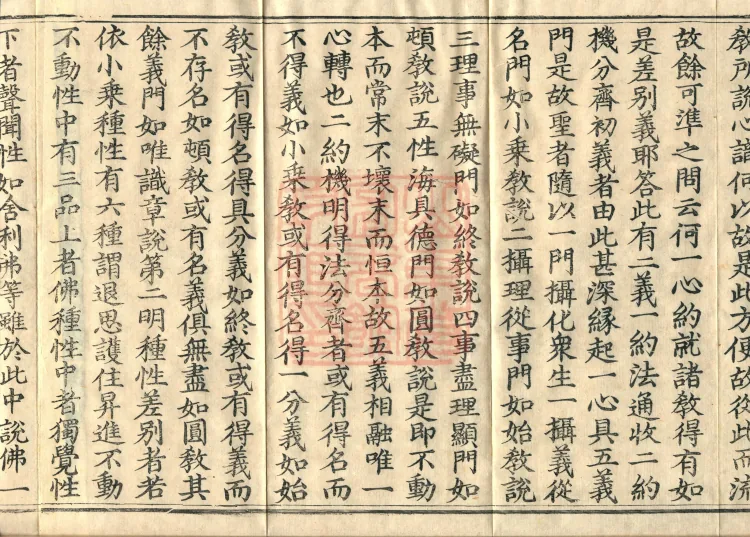 教所說心諦何以故是此方便故從此而流
故餘可準之問云何一心約就諸教得有如
是差別義耶答此有二義一約法通收二約
機分齊初義者由此甚深緣起一心具五義
門是故聖者隨以一門攝化衆生一攝義從
名門如小乘教說二攝理從事門如始教說
三理事無礙門如終教說四事盡理顯門如
頓教說五性海具德門如圓教說是即不動
本而常末不壞末而恒本故五義相融唯一
心轉也二約機明得法分齊者或有得名而
不得義如小乘教或有得名得一分義如始
教或有得名得具分義如終教或有得義而
不存名如頓教或有名義俱無盡如圓教其
餘義門如唯識章說第二明種性差別者若
依小乘種性有六種謂退思護住昇進不動
不動性中有三品上者佛種性中者獨覺性
下者聲聞性如舍利弗等雖於此中說佛一